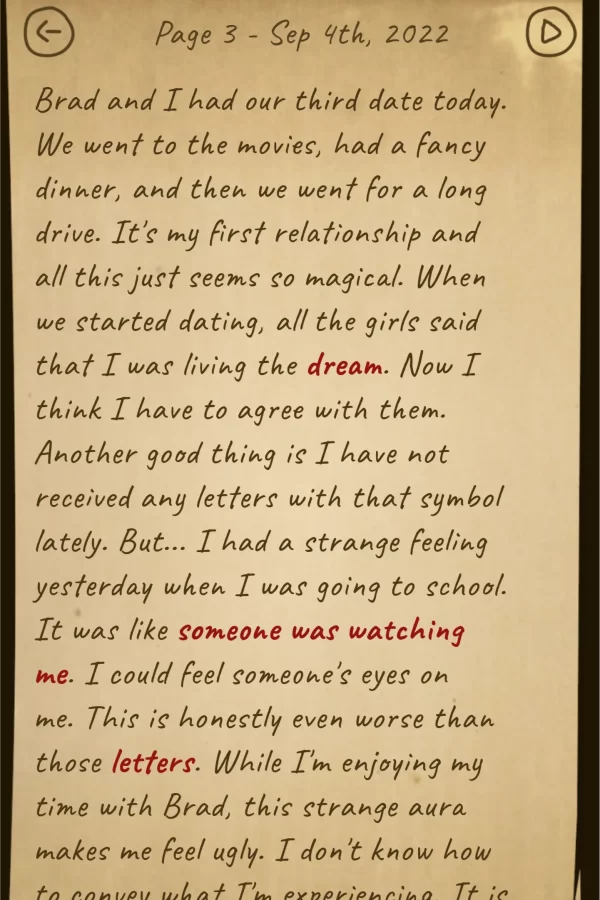 Page 3 - Sep 4th, 2022
Brad and I had our third date today.
We went to the movies, had a fancy
dinner, and then we went for a long
drive. It's my first relationship and
all this just seems so magical. When
we started dating, all the girls said
that I was living the dream. Now I
think I have to agree with them.
Another good thing is I have not
received any letters with that symbol
lately. But... I had a strange feeling
yesterday when I was going to school.
It was like someone was watching
me. I could feel someone's eyes on
me. This is honestly even worse than
those letters. While I'm enjoying my
time with Brad, this strange aura
makes me feel ugly. I don't know how
to convey what I'm experiencing. It is